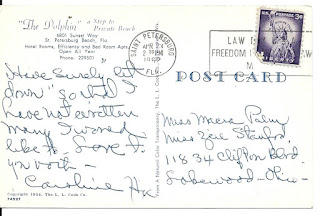 "The Dolphin" a Step to
Private Beach
6801 Sunset Way
St. Petersburg Beach, Fla.
Hotel Rooms, Efficiency and Bedroom Apts.
Open All Year
Phone: 229501
SAINT PETERSBURG
APR 24
2 PM
FLA.
LAW
FREEDOM
3¢
LIBERTY
POST CARD
Have Surely let
down" so that I
have not written
many I would
like to. Love to
you both -
Caroline
Miss Mera Palm
Miss Zoe Stanford
11834 Clifton Blvd.
Lakewood - Ohio -
Copyright 1956, The L. L. Cook Co.
74927